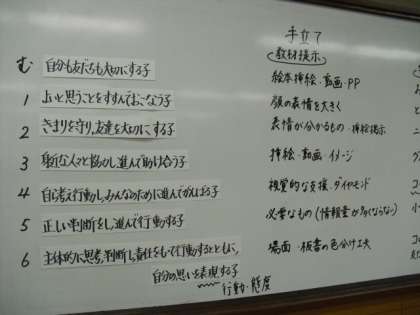 手立て
教材提示
む 自分も友だちも大切にする子
1 よいと思うことをすすんでおこなう子
2 きまりを守り、友達を大切にする子
3 身近な人々と協力し、進んで助け合う子
4 自ら考え行動し、みんなのために進んでがんばる子
5 正しい判断をし、進んで行動する子
6 主体的に思考、判断し、責任をもって行動するとともに、
自分の思いを表現する子
行動・態度
絵本挿絵・動画・PP
顔の表情を大きく
表情が分かるもの・挿絵掲示
挿絵・動画・イメージ
視覚的な支援・ダイヤモンド
必要なもの(情報量が多くならない)
場面・板書の色分け工夫